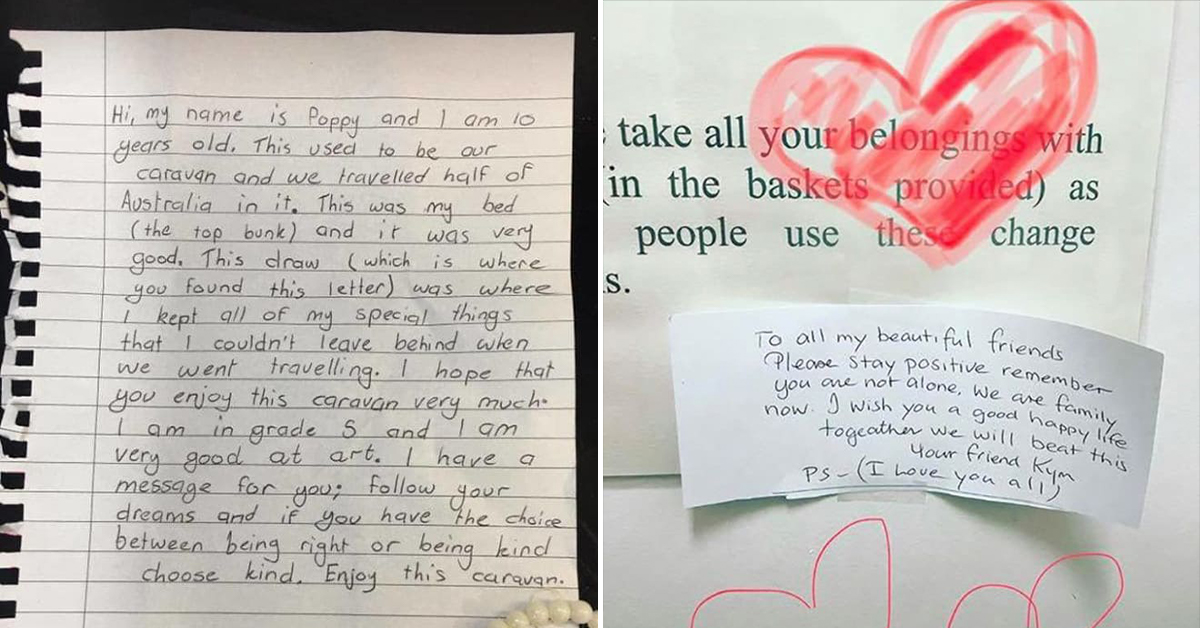 Hi, my name is Poppy and I am 10
years old. This used to be our
caravan and we travelled half of
Australia in it. This was my bed
(the top bunk) and it was very
good. This draw (which is where
you found this letter) was where
I kept all of my special things
that I couldn't leave behind when
we went travelling. I hope that
you enjoy this caravan very much.
I am in grade 5 and I am
very good at art. I have a
message for you; follow your
dreams and if you have the choice
between being right or being kind
choose kind. Enjoy this caravan.
take all your belongings with
(in the baskets provided) as
people use these change
s.
To all my beautiful friends
Please stay positive remember
you are not alone, we are family
now. I wish you a good happy life
togeather we will beat this
Your friend Kym
PS - (I Love you all)